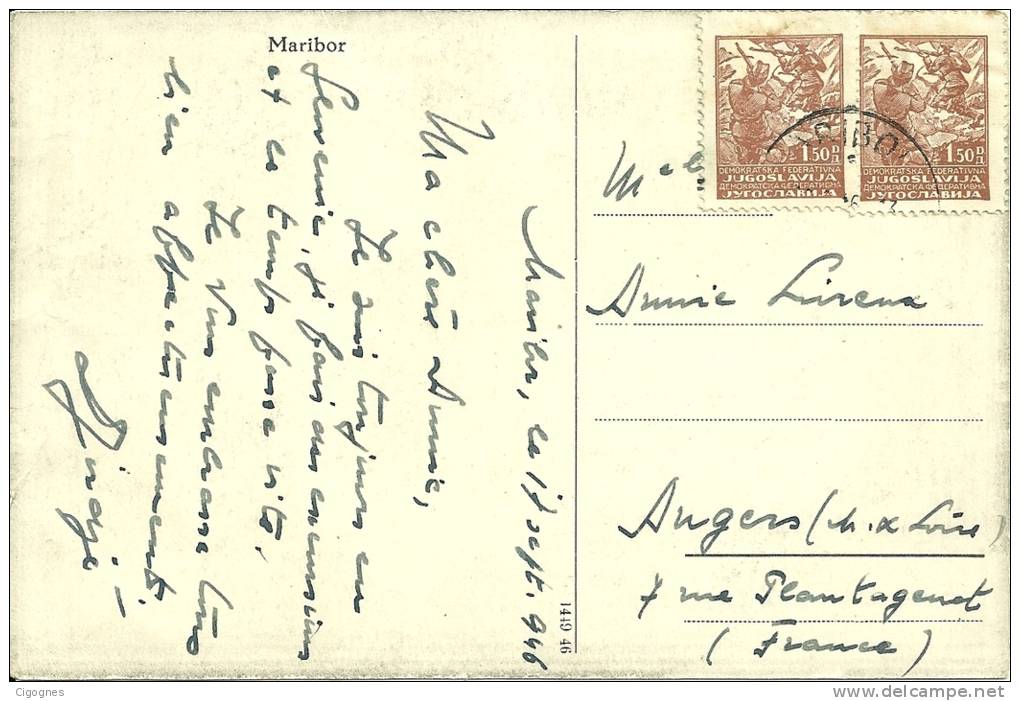 Maribor
Maribor, le 17 sept. 946
Ma chère Annie,
Je suis toujours en
Slovénie, je fais des excursions
et le temps passe vite.
Je vous embrasse tous
bien affectueusement.
DEMOKRATSKA FEDERATIVNA
JUGOSLAVIJA
ДЕМОКРАТСКА ФЕДЕРАТИВНА
ЈУГОСЛАВИЈА
1.50 D
Д
DEMOKRATSKA FEDERATIVNA
JUGOSLAVIJA
ДЕМОКРАТСКА ФЕДЕРАТИВНА
ЈУГОСЛАВИЈА
1.50 D
Д
Melle
Annie
Angers (M. & Loire)
7 rue Plantagenet
(France)
1449 46
Cigognes
www.delcampe.net